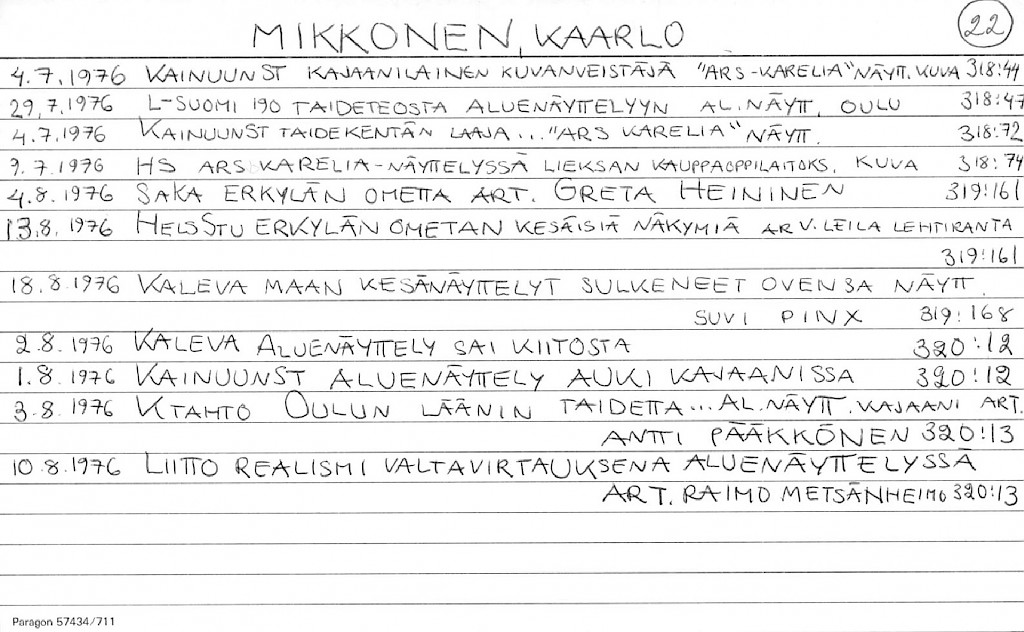 MIKKONEN, KAARLO 22
4.7.1976 KAINUUNST KAJAANILAINEN KUVANVEISTÄJÄ "ARS-KARELIA" NÄYTT. KUVA 318:44
29.7.1976 L-SUOMI 190 TAIDETEOSTA ALUENÄYTTELYYN AL.NÄYTT, OULU 318:47
4.7.1976 KAINUUNST TAIDEKENTÄN LAAJA... "ARS KARELIA" NÄYTT. 318:72
9.7.1976 HS ARS KARELIA-NÄYTTELYSSÄ LIEKSAN KAUPPAOPPILAITOKS. KUVA 318:74
4.8.1976 SAKA ERKYLÄN OMETTA ART. GRETA HEININEN 319:161
13.8.1976 HELSSTU ERKYLÄN OMETAN KESÄISIÄ NÄKYMIÄ ARV. LEILA LEHTIRANTA
319:161
18.8.1976 KALEVA MAAN KESÄNÄYTTELYT SULKENEET OVENSA NÄYTT.
SUVI PINX 319:168
2.8.1976 KALEVA ALUENÄYTTELY SAI KIITOSTA 320:12
1.8.1976 KAINUUNST ALUENÄYTTELY AUKI KAJAANISSA 320:12
3.8.1976 KTAHTO OULUN LÄÄNIN TAIDETTA... AL.NÄYTT. KAJAANI ART.
ANTTI PÄÄKKÖNEN 320:13
10.8.1976 LIITTO REALISMI VALTAVIRTAUKSENA ALUENÄYTTELYSSÄ
ART. RAIMO METSÄNHEIMO 320:13
Paragon 57434/711